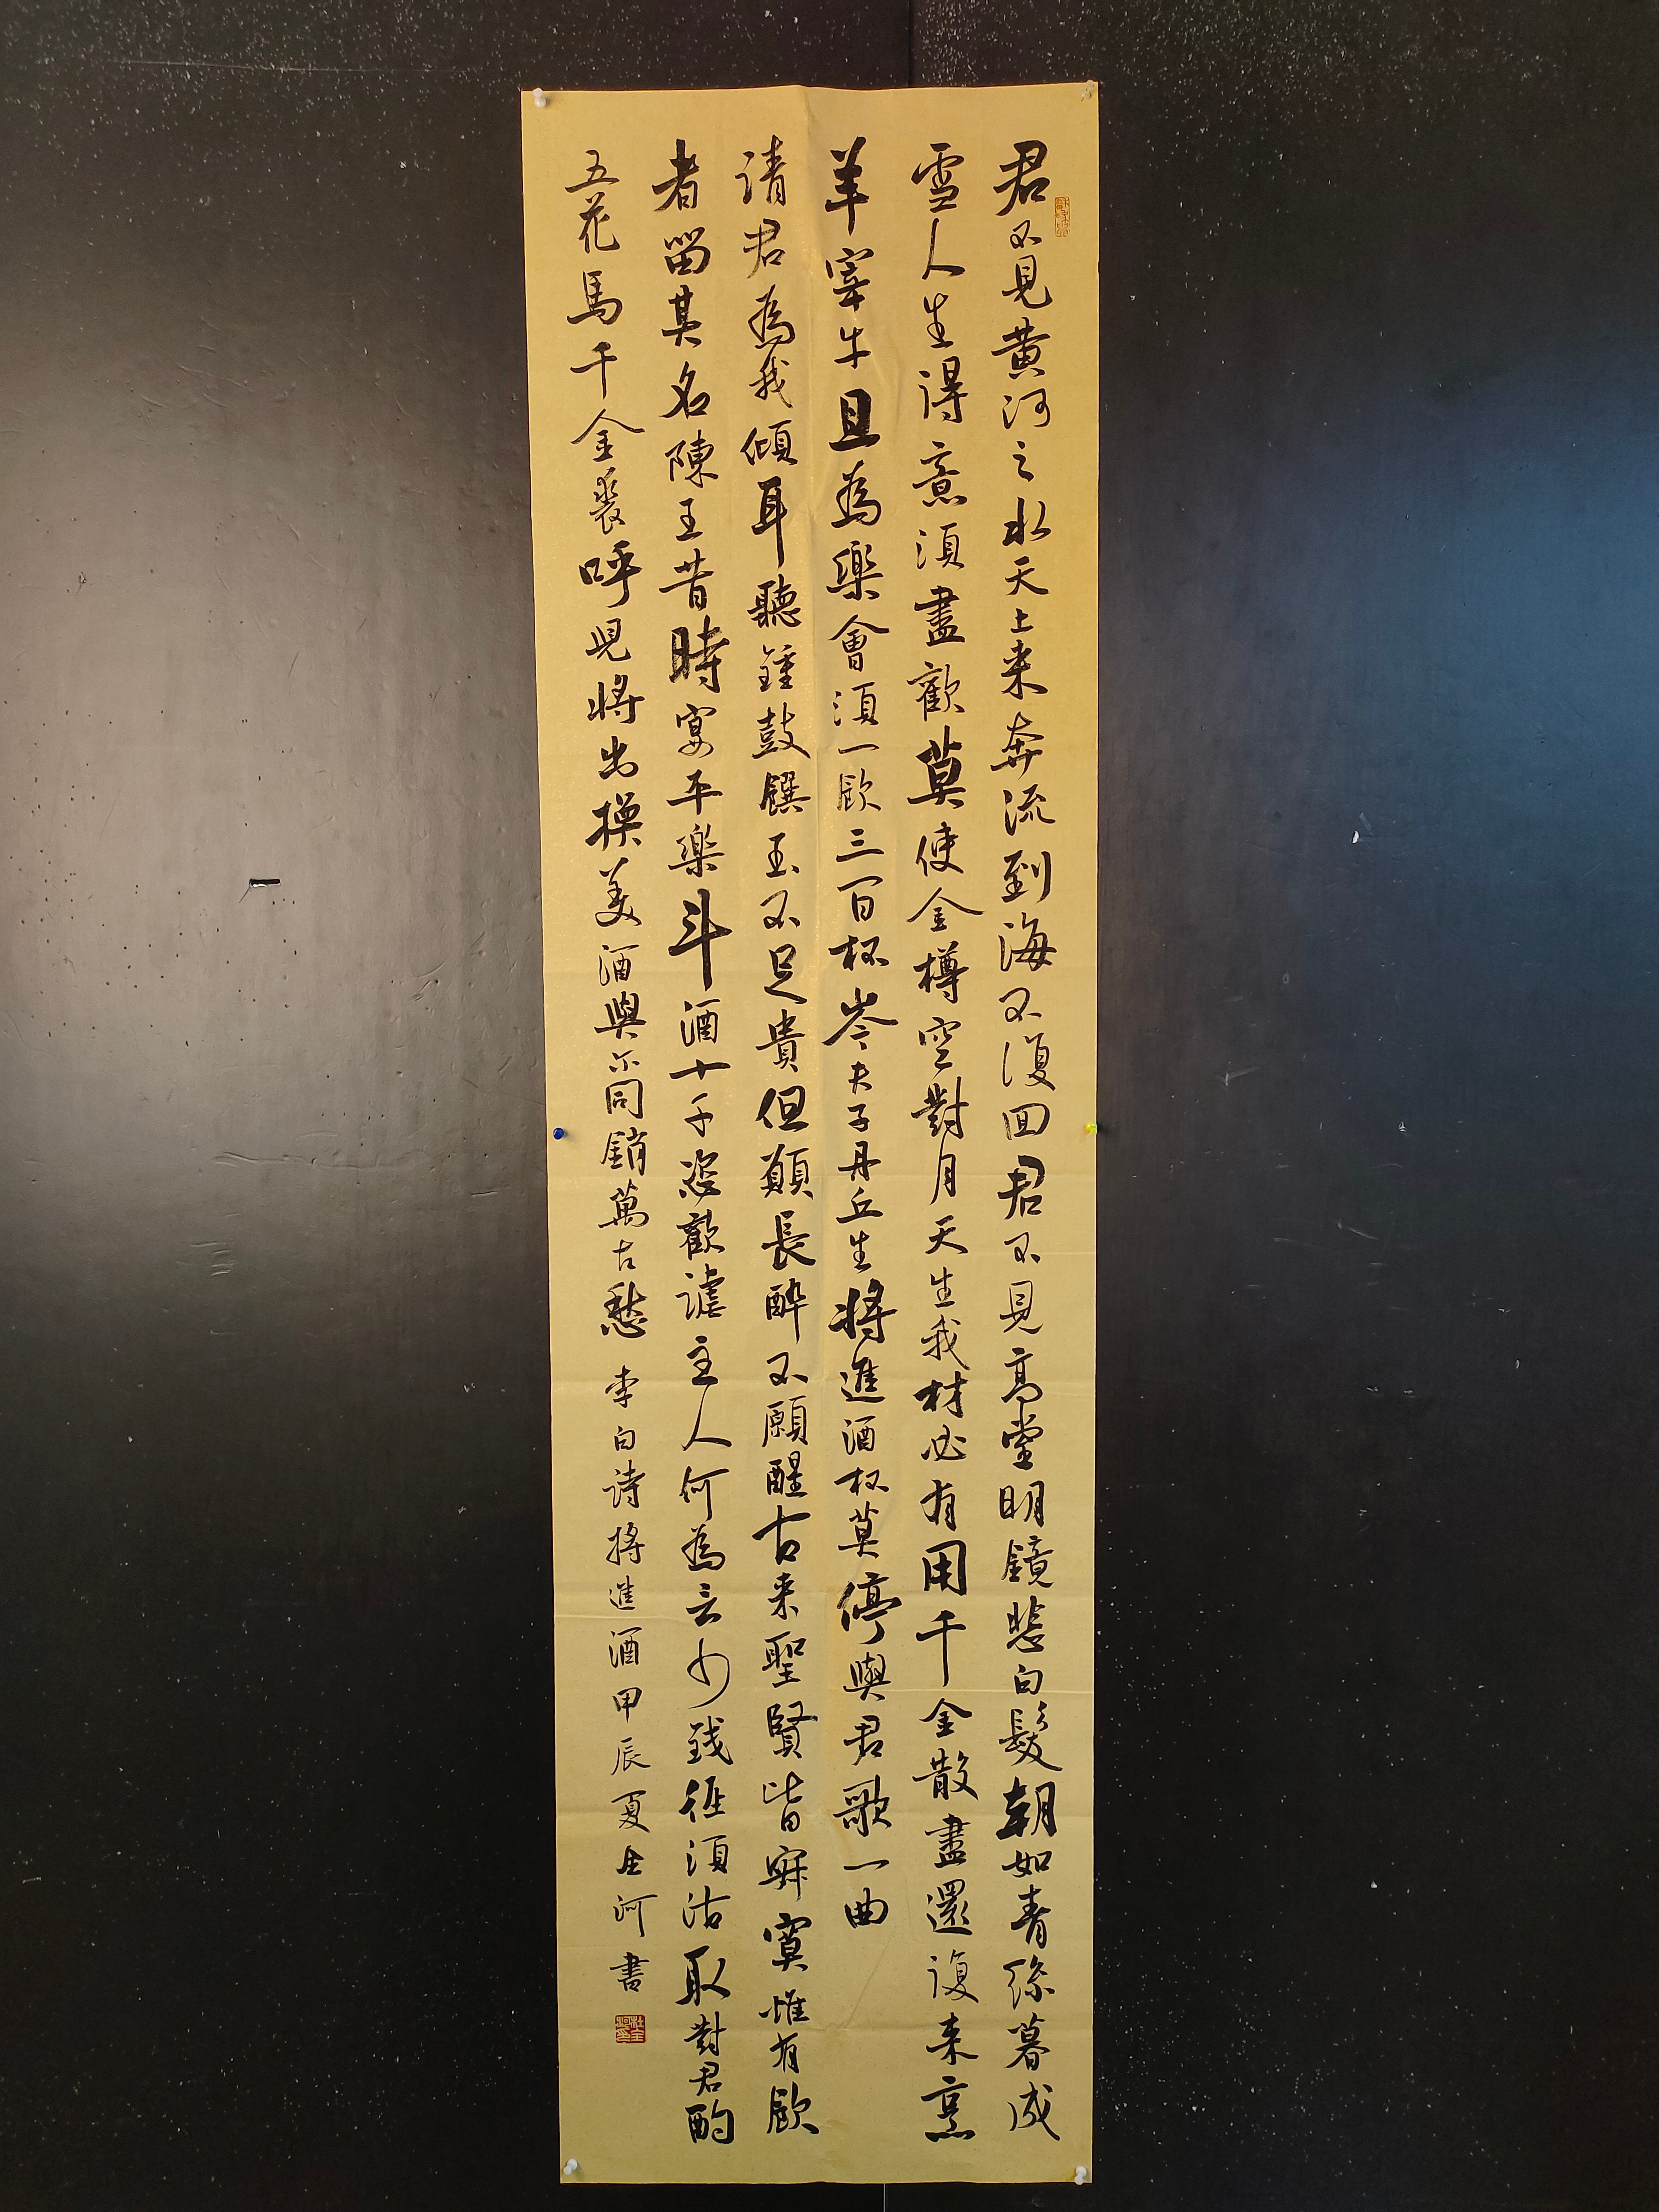 君不見黃河之水天上来奔流到海不復回君不見高堂明鏡悲白髮朝如青絲暮成
雪人生得意須盡歡莫使金樽空對月天生我材必有用千金散盡還復来烹
羊宰牛且為樂會須一飲三百杯岑夫子丹丘生將進酒杯莫停與君歌一曲
请君為我傾耳聽鍾鼓饌玉不足貴但願長醉不願醒古来聖賢皆寂寞惟有飲
者留其名陳王昔時宴平樂斗酒十千恣歡謔主人何為言少錢徑須沽取對君酌
五花馬千金裘呼兒將出換美酒與尔同銷萬古愁 李白诗將進酒甲辰夏全河書